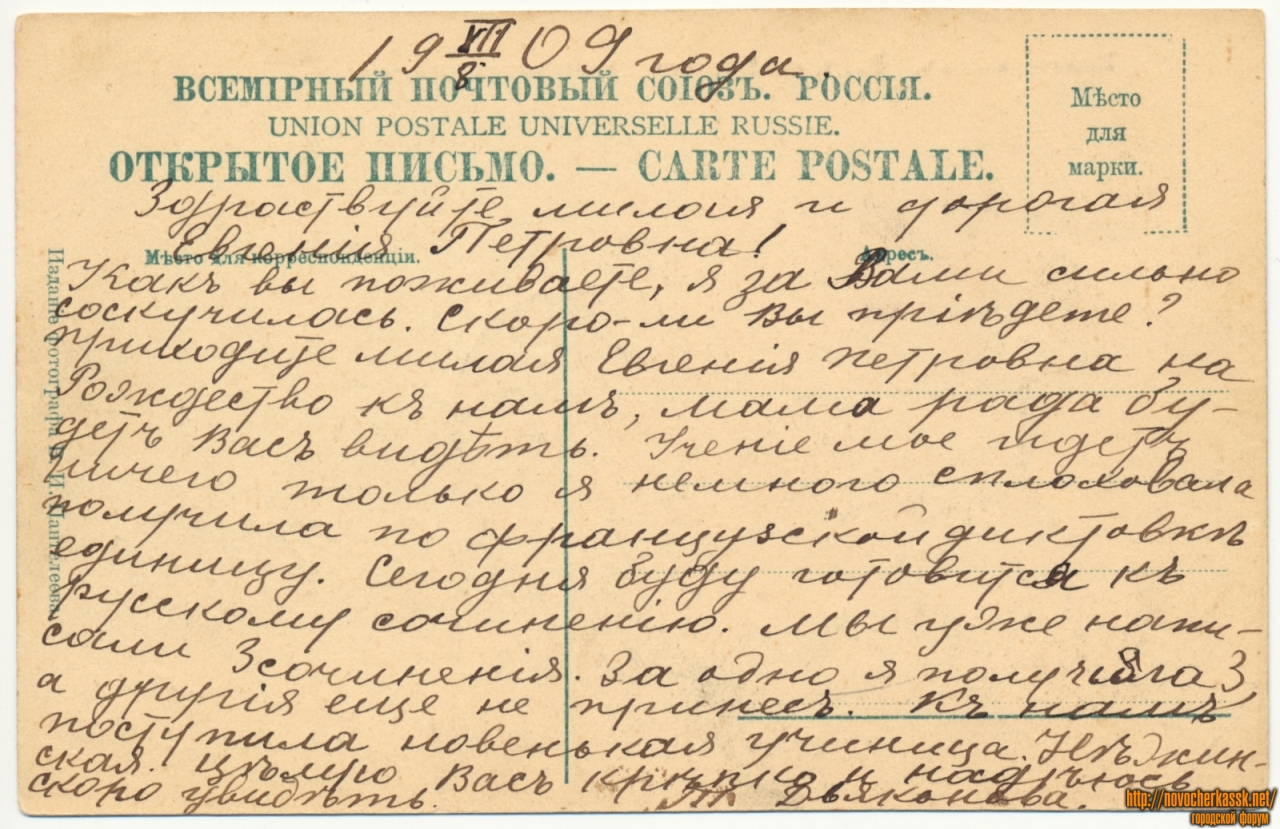 19 VIII/8 09 года.
ВСЕМІРНЫЙ ПОЧТОВЫЙ СОЮЗЪ. РОССІЯ.
UNION POSTALE UNIVERSELLE RUSSIE.
ОТКРЫТОЕ ПИСЬМО. — CARTE POSTALE.
Мѣсто
для
марки.
Здраствуйте милая и дорогая
Евгенія Петровна!
Мѣсто для корреспонденціи.
Адресъ.
Какъ вы поживаете, я за Вами сильно
соскучилась. Скоро-ли Вы пріѣдете?
приходите милая Евгенія Петровна на
Рождество къ намъ, мама рада бу-
детъ Васъ видѣть. Ученіе мое идетъ
ничего только я немного сплоховала
получила по французской диктовкѣ
единицу. Сегодня буду готовится къ
русскому сочиненію. Мы уже напи-
сали 3 сочиненія. За одно я получила 3,
а другія еще не принесъ. Къ намъ
поступила новенькая учиница Нѣжин-
ская. цѣлую Васъ крѣпко и надѣюсь
скоро увидѣть. Т. Дьяконова.
Изданіе фотографа И. И. Пантелеева
http://novocherkassk.net/
городской форум